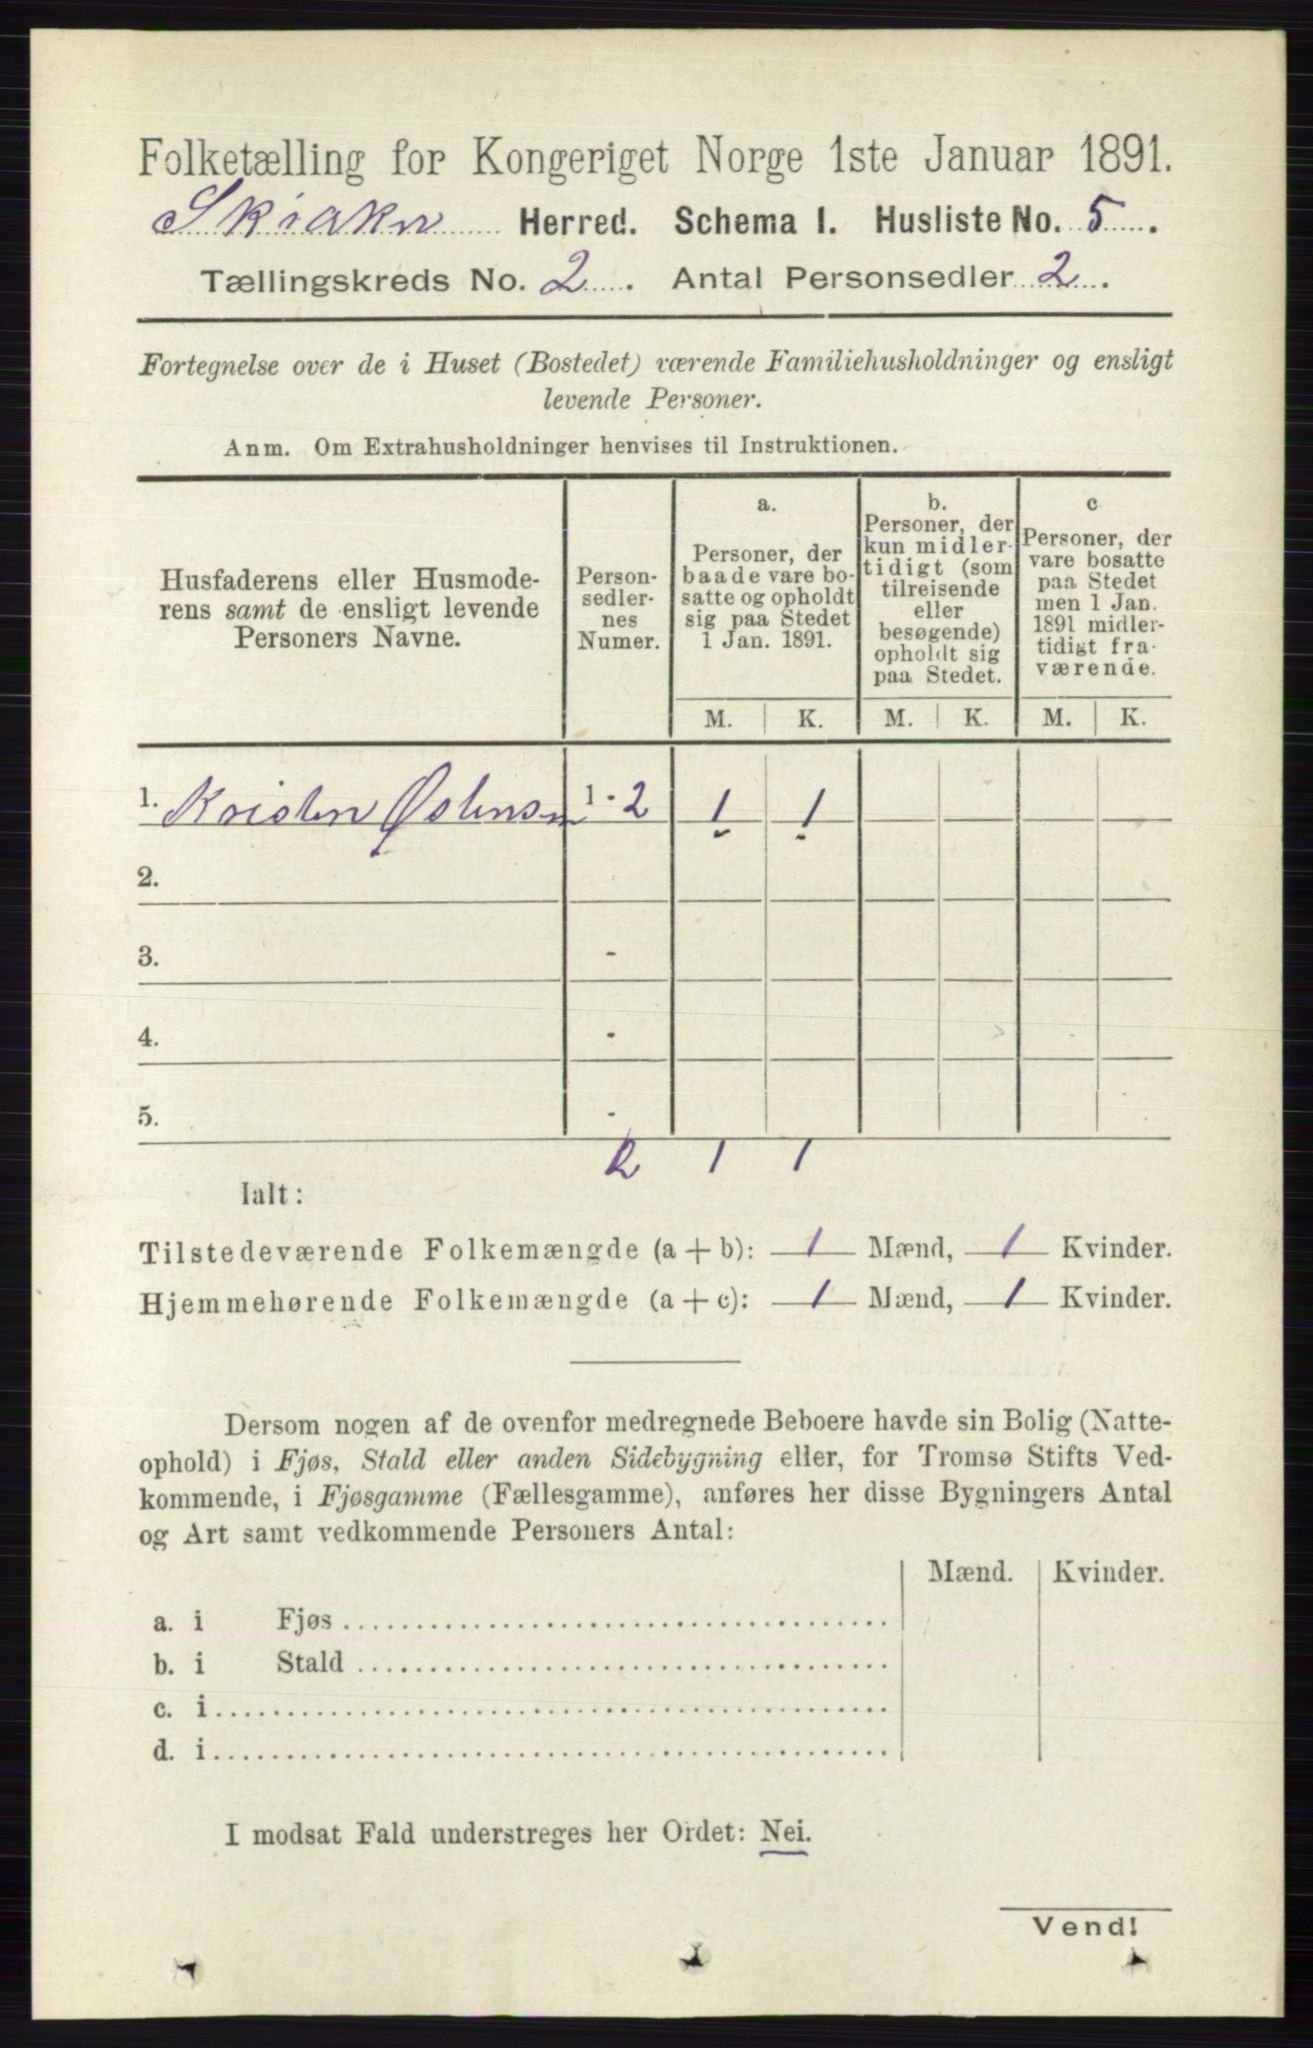 Folketælling for Kongeriget Norge 1ste Januar 1891.
Skiaker Herred. Schema I. Husliste No. 5.
Tællingskreds No. 2. Antal Personsedler 2.
Fortegnelse over de i Huset (Bostedet) værende Familiehusholdninger og ensligt
levende Personer.
Anm. Om Extrahusholdninger henvises til Instruktionen.
Husfaderens eller Husmode-
rens samt de ensligt levende
Personers Navne.
Person-
sedler-
nes
Numer.
a.
Personer, der
baade vare bo-
satte og opholdt
sig paa Stedet
1 Jan. 1891.
b.
Personer, der
kun midler-
tidigt (som
tilreisende
eller
besøgende)
opholdt sig
paa Stedet.
c
Personer, der
vare bosatte
paa Stedet
men 1 Jan.
1891 midler-
tidigt fra-
værende.
M. K. M. K. M. K.
1. Kristen Østensen 1 - 2 1 1
2.
3. -
4. -
5. -
2 1 1
Ialt:
Tilstedeværende Folkemængde (a + b): 1 Mænd, 1 Kvinder.
Hjemmehørende Folkemængde (a + c): 1 Mænd, 1 Kvinder.
Dersom nogen af de ovenfor medregnede Beboere havde sin Bolig (Natte-
ophold) i Fjøs, Stald eller anden Sidebygning eller, for Tromsø Stifts Ved-
kommende, i Fjøsgamme (Fællesgamme), anføres her disse Bygningers Antal
og Art samt vedkommende Personers Antal:
Mænd. Kvinder.
a. i Fjøs
b. i Stald
c. i
d. i
I modsat Fald understreges her Ordet: Nei.
Vend!